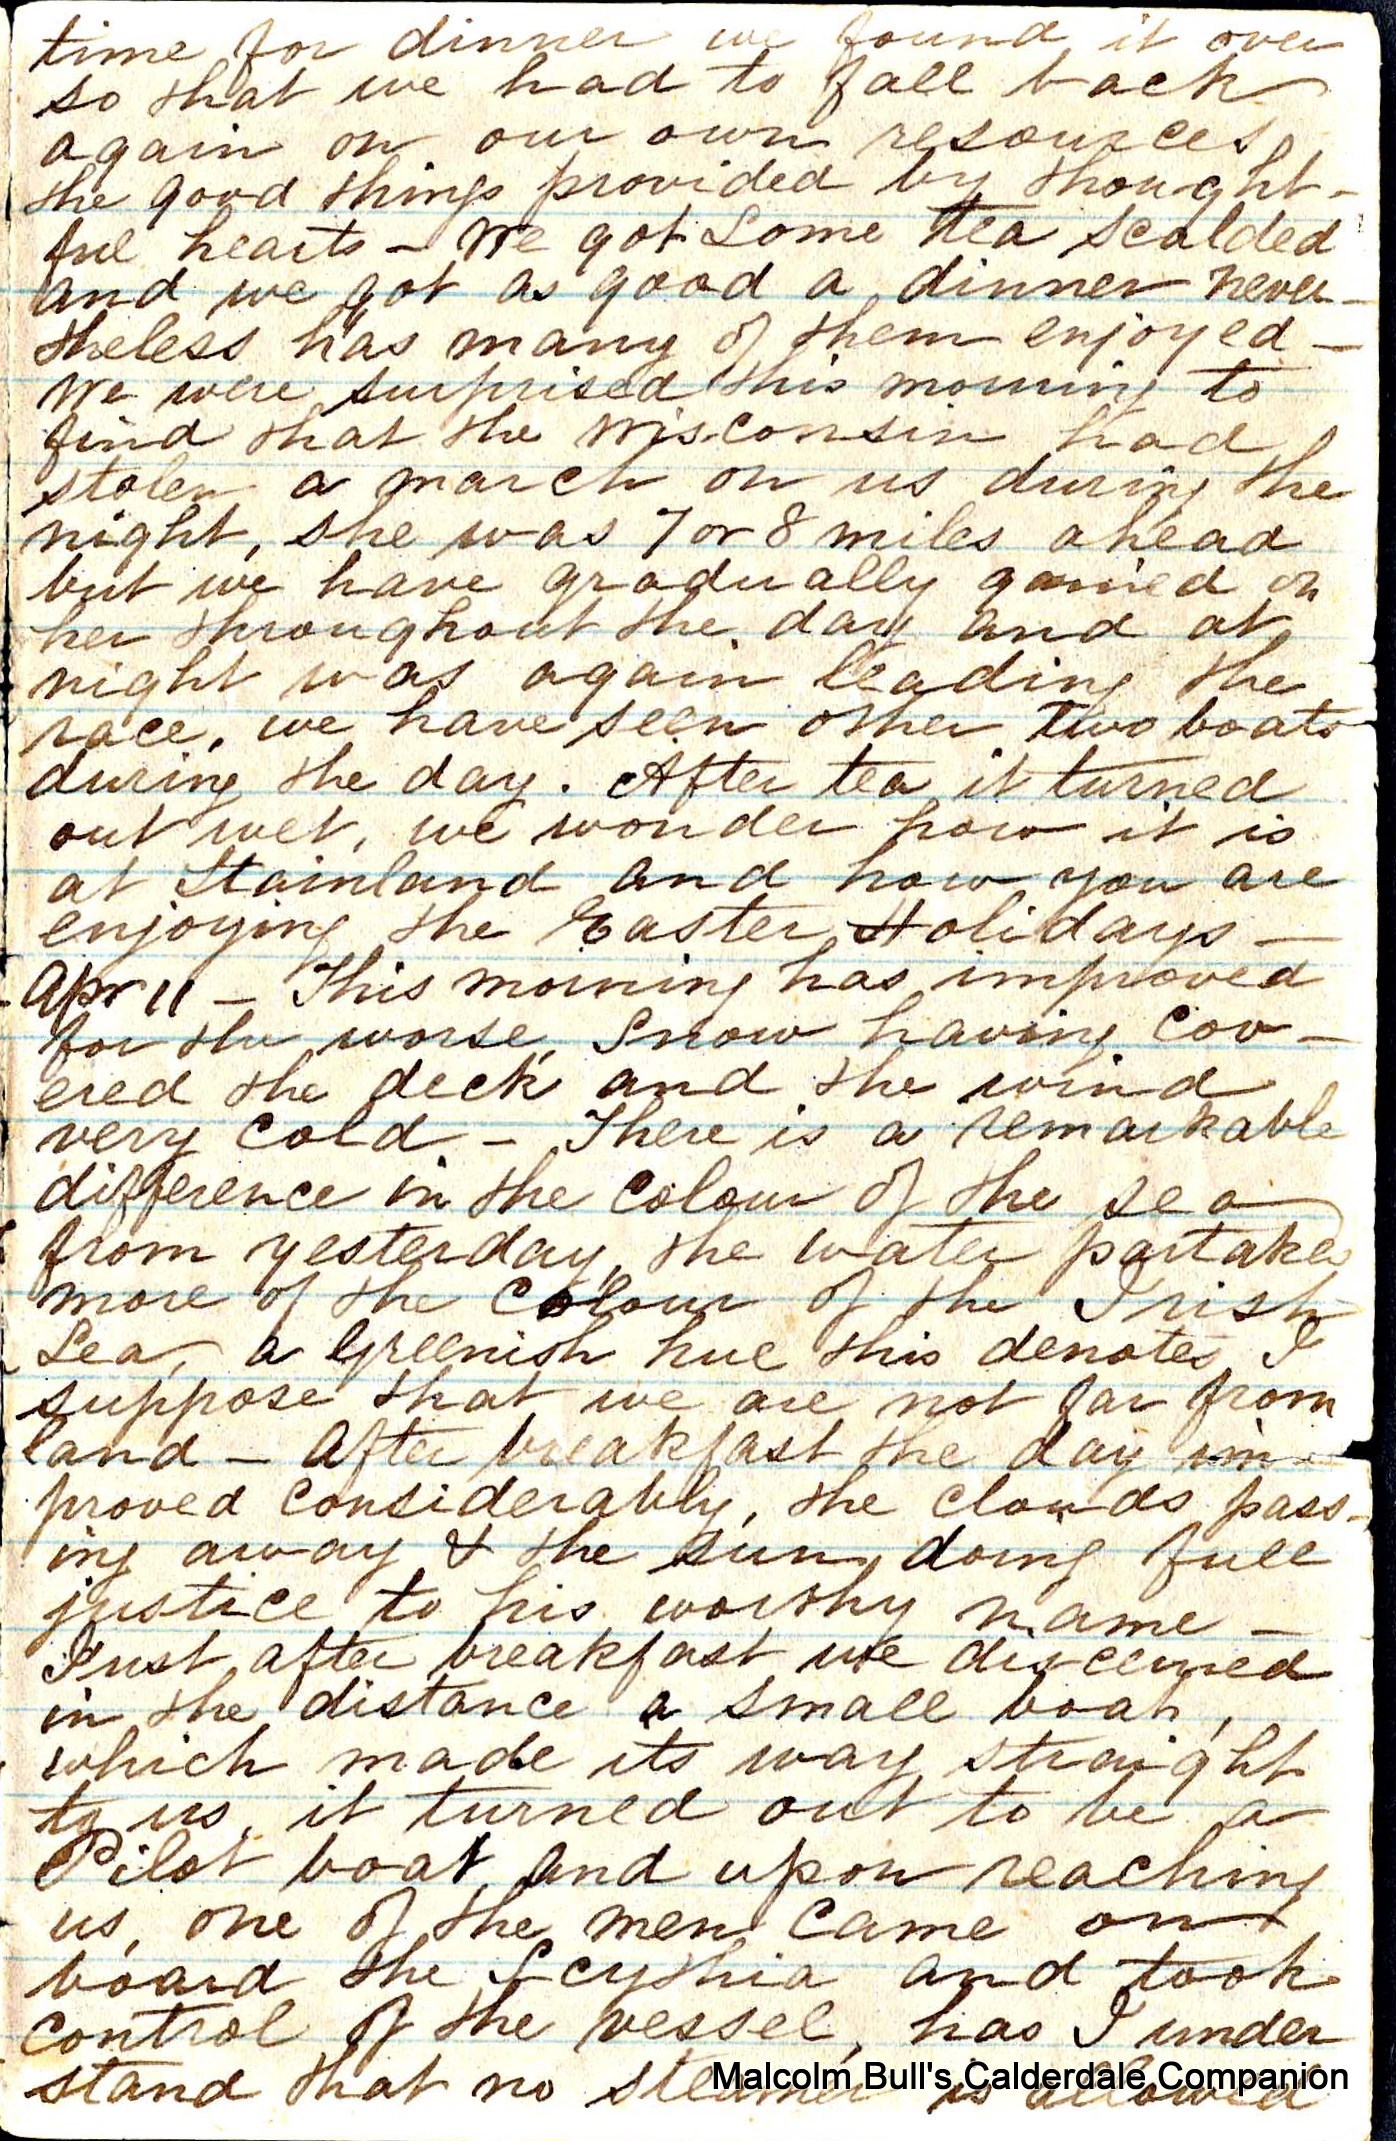 time for dinner we found it over
so that we had to fall back
again on our own resources,
the good things provided by thought-
ful hearts - We got some tea scalded
and we got as good a dinner never-
theless has many of them enjoyed -
We were surprised this morning to
find that the Wisconsin had
stolen a march on us during the
night, she was 7 or 8 miles ahead
but we have gradually gained on
her throughout the day and at
night was again leading the
race, we have seen other two boats
during the day. After tea it turned
out wet, we wonder how it is
at Stainland and how you are
enjoying the Easter Holidays -
Apr 11 - This morning has improved
for the worse, Snow having cov-
ered the deck and the wind
very cold - There is a remarkable
difference in the colour of the sea
from yesterday, the water partakes
more of the colour of the Irish
Sea, a Greenish hue this denotes I
suppose that we are not far from
land - After breakfast the day im-
proved considerably, the clouds pass-
ing away & the sun doing full
justice to his worthy name -
Just after breakfast we discerned
in the distance a small boat,
which made its way straight
to us, it turned out to be a
Pilot boat and upon reaching
us, one of the men came on
board the Scythia and took
control of the vessel, has I under
stand that no steamer is allowed
Malcolm Bull's Calderdale Companion